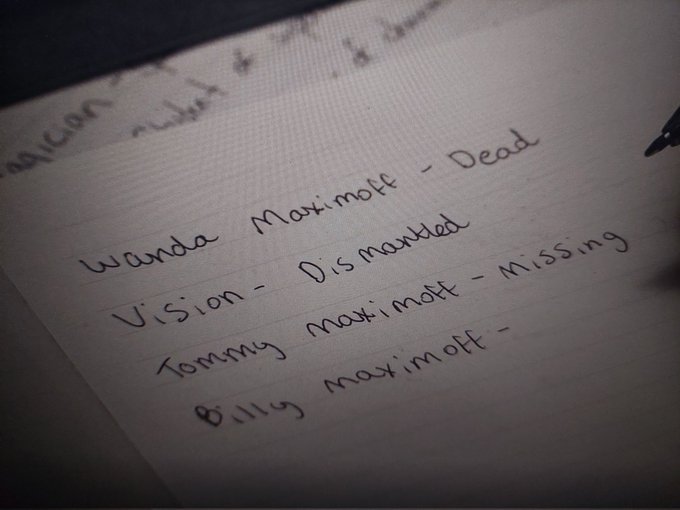 Wanda Maximoff - Dead
Vision - Dismantled
Tommy maximoff - missing
Billy maximoff -